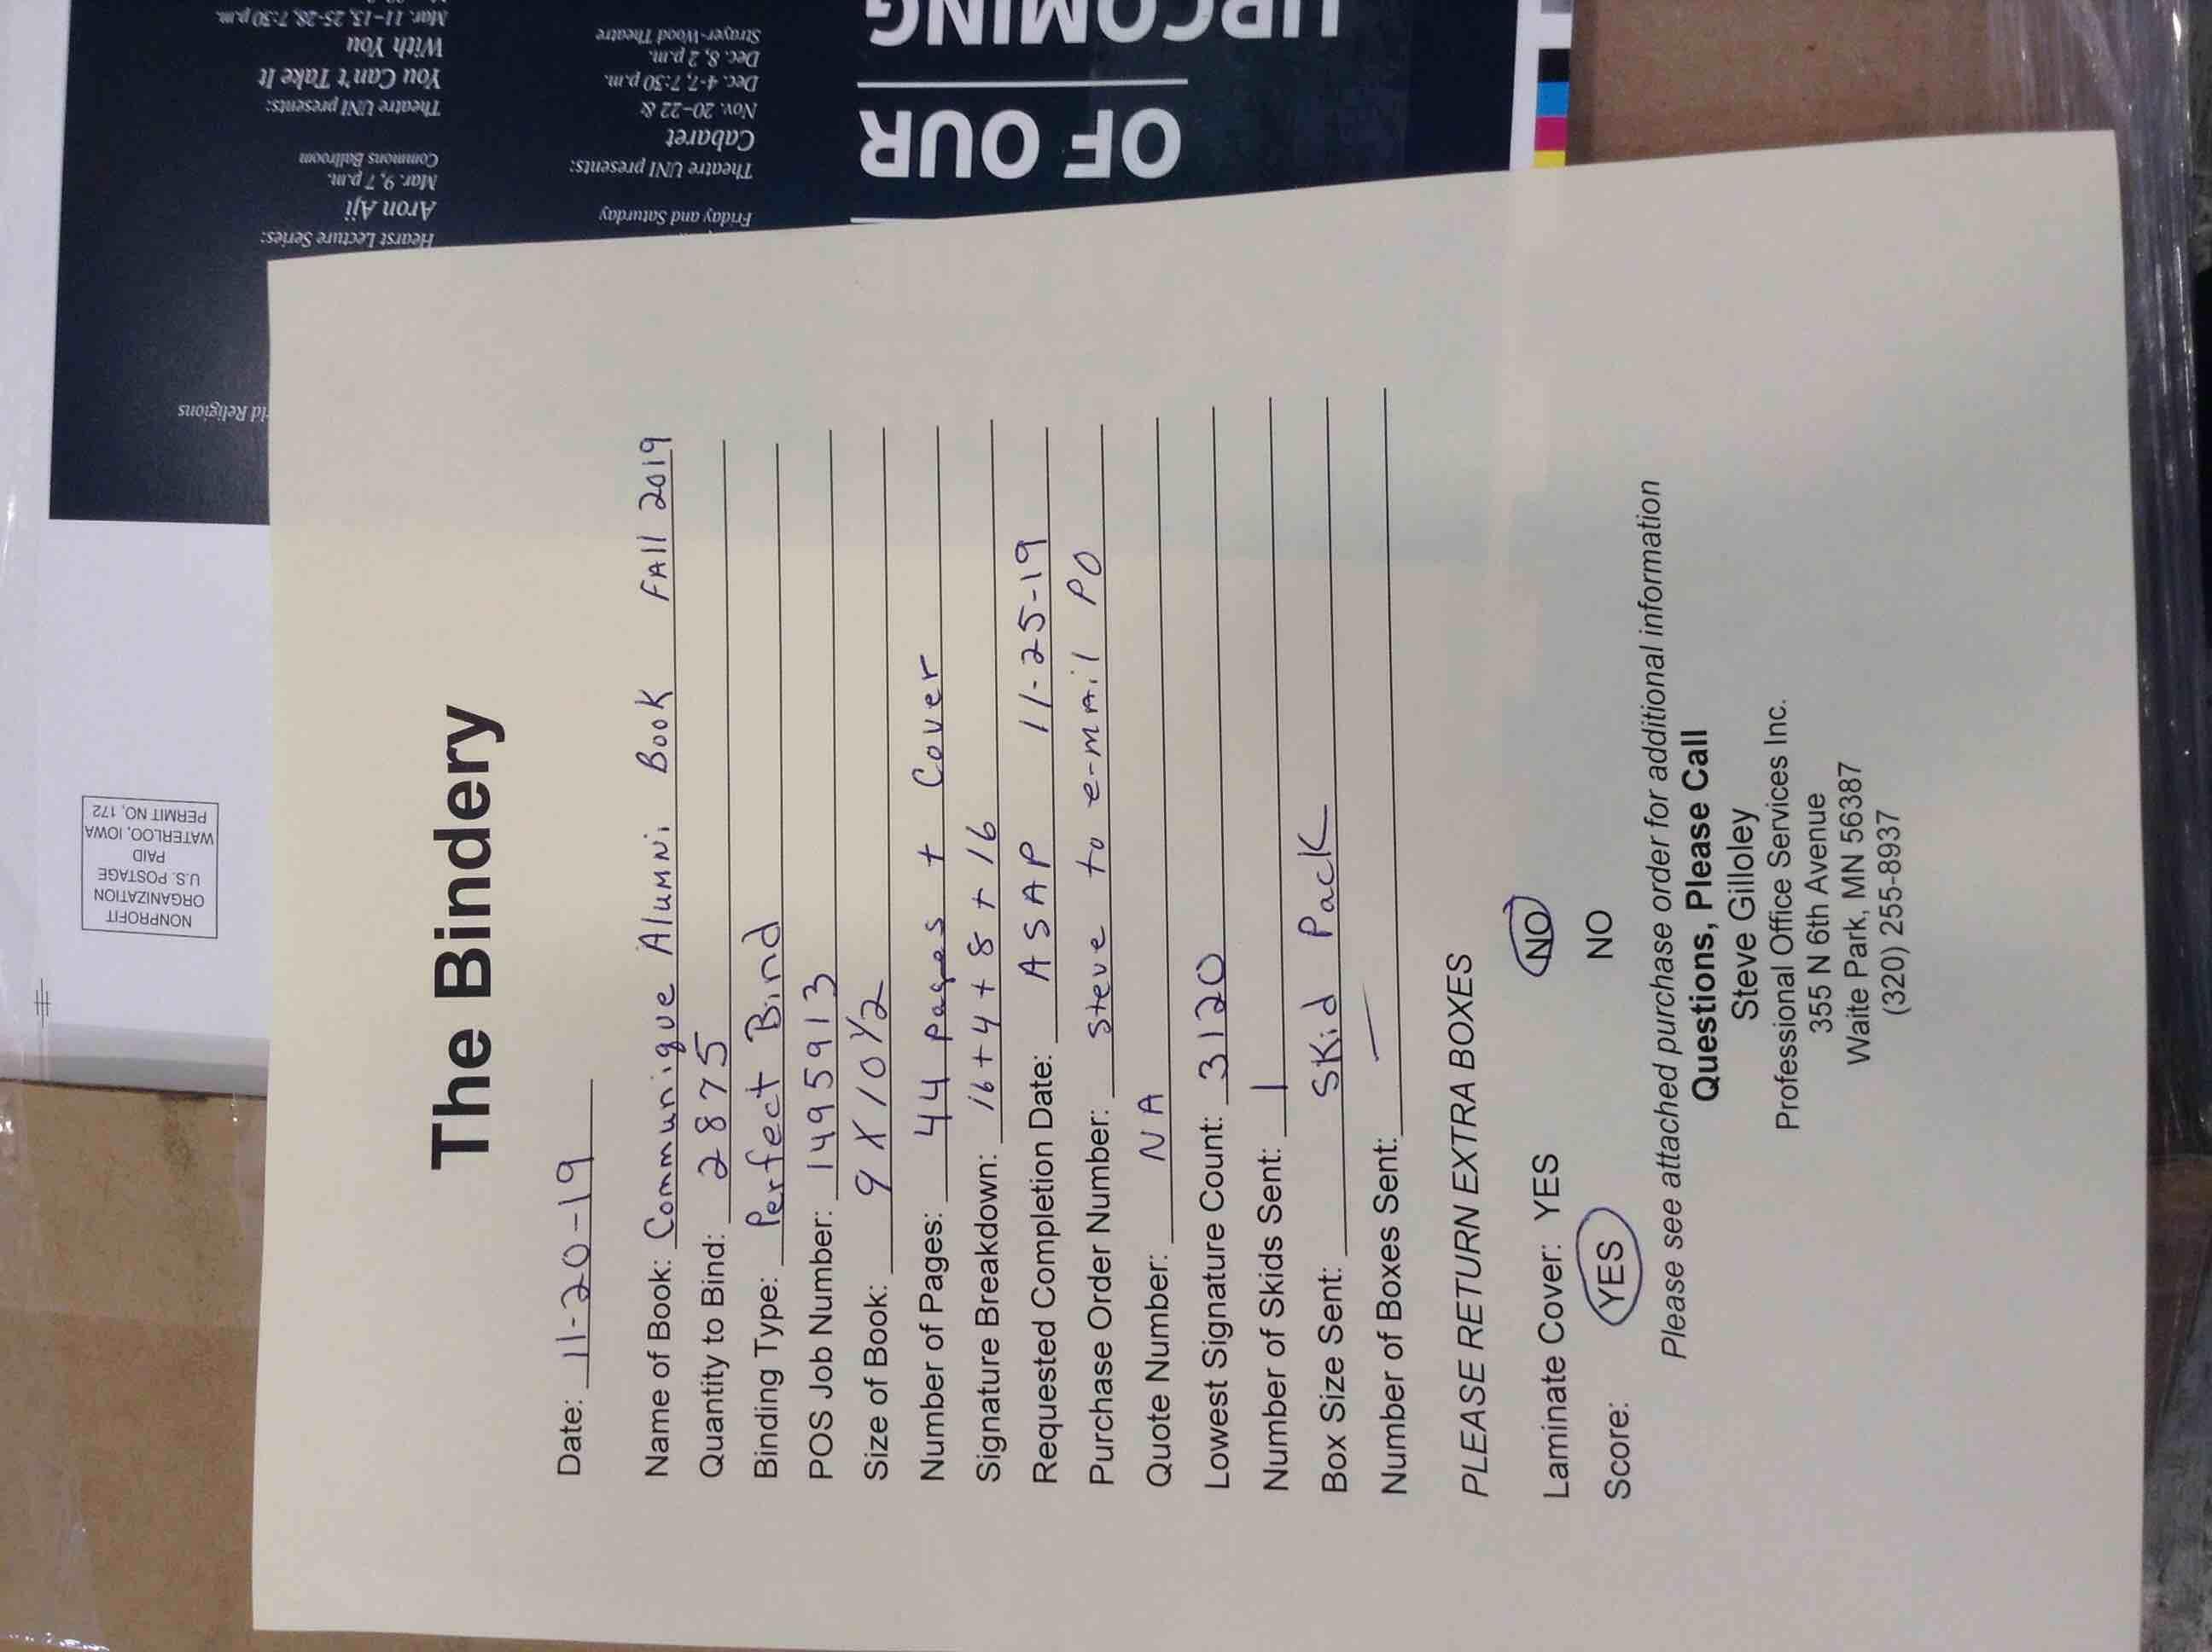 The Bindery
Date: 11-20-19
Name of Book: Communique Alumni Book FAll 2019
Quantity to Bind: 2875
Binding Type: Perfect Bind
POS Job Number: 1495913
Size of Book: 9 X 10 1/2
Number of Pages: 44 pages + Cover
Signature Breakdown: 16 + 4 + 8 + 16
Requested Completion Date: ASAP 11-25-19
Purchase Order Number: Steve to e-mail PO
Quote Number: NA
Lowest Signature Count: 3120
Number of Skids Sent: 1
Box Size Sent: Skid Pack
Number of Boxes Sent: —
PLEASE RETURN EXTRA BOXES
Laminate Cover: YES NO
Score: YES NO
Please see attached purchase order for additional information
Questions, Please Call
Steve Gilloley
Professional Office Services Inc.
355 N 6th Avenue
Waite Park, MN 56387
(320) 255-8937
NONPROFIT
ORGANIZATION
U.S. POSTAGE
PAID
WATERLOO, IOWA
PERMIT NO. 172
OF OUR
UPCOMING
Friday and Saturday
Theatre UNI presents:
Cabaret
Nov. 20–22 &
Dec. 4-7, 7:30 p.m.
Dec. 8, 2 p.m.
Strayer-Wood Theatre
Religions
Hearst Lecture Series:
Aron Aji
Mar. 9, 7 p.m.
Commons Ballroom
Theatre UNI presents:
You Can't Take It
With You
Mar. 11–13, 25-28, 7:30 p.m.